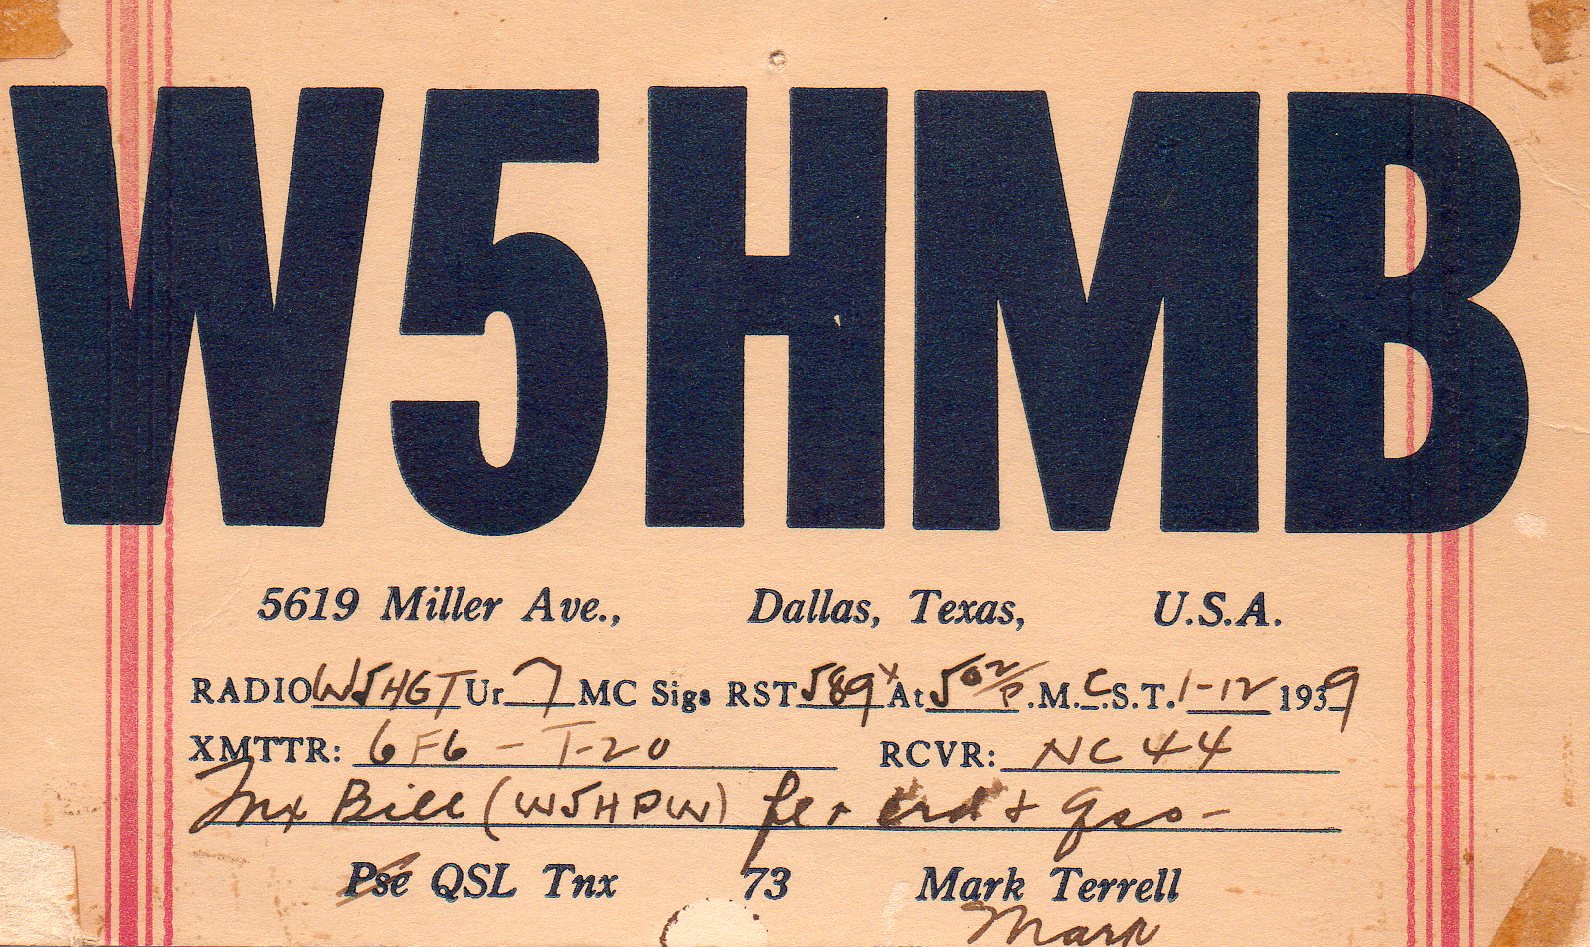 W5HMB
5619 Miller Ave., Dallas, Texas, U.S.A.
RADIO W5HGT Ur 7 MC Sigs RST 589x At 502/P.M. C.S.T. 1-12 1939
XMTTR: 6F6 - T-20 RCVR: NC 44
Tnx Bill (W5HPW) fer crd + Qso-
Pse QSL Tnx 73 Mark Terrell
Mark